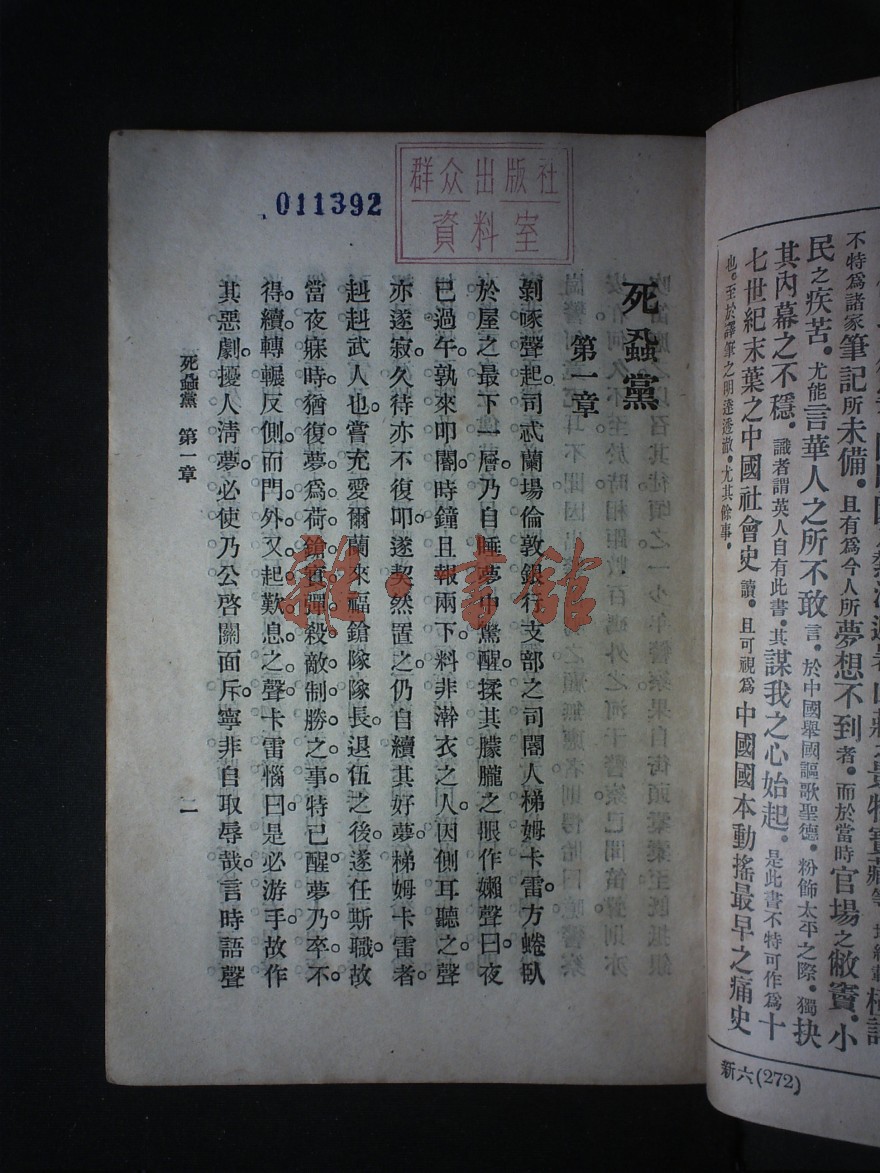 群众出版社
資料室
011392
死蝨黨
第一章
剝啄聲起。司忒蘭場倫敦銀行支部之司閽人梯姆卡雷。方蜷臥
於屋之最下一層。乃自睡夢中驚醒。揉其朦朧之眼。作嬾聲曰。夜
已過午。孰來叩閽。時鐘且報兩下。料非澣衣之人。因側耳聽之。聲
亦遂寂。久待亦不復叩。遂契然置之。仍自續其好夢。梯姆卡雷者。
赳赳武人也。嘗充愛爾蘭來福鎗隊隊長。退伍之後。遂任斯職。故
當夜寐時。猶復夢爲荷鎗實彈殺敵制勝之事。特已醒夢乃卒不
得續。轉輾反側。而門外又起歎息之聲。卡雷惱曰。是必游手。故作
其惡劇。擾人淸夢。必使乃公啓關面斥。寧非自取辱哉。言時。語聲
死蝨黨 第一章
一
雜·書館
不特爲諸家筆記所未備。且有爲今人所夢想不到者。而於當時官場之敝竇。小
民之疾苦。尤能言華人之所不敢言。於中國舉國謳歌聖德。粉飾太平之際。獨抉
其內幕之不穩。識者謂英人自有此書。其謀我之心始起。是此書不特可作爲十
七世紀末葉之中國社會史讀。且可視爲中國國本動搖最早之痛史
也。至於譯筆之明達透澈。尤其餘事。
新六(272)